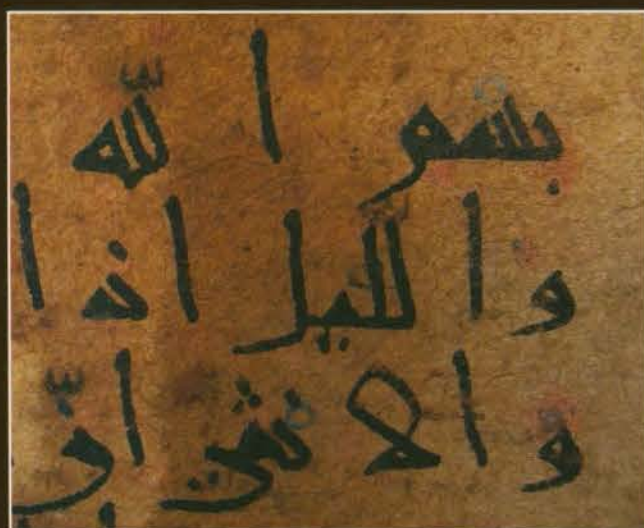 بسم الله
والليل اذا
والانثى ان